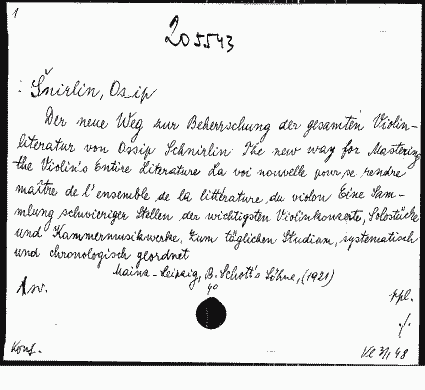 1
205543
Šnirlin, Osip
Der neue Weg zur Beherrschung der gesamten Violin-
literatur von Ossip Schnirlin The new way for Mastering
the Violin's Entire Literature La voi nouvelle pour se rendre
maître de l'ensemble de la littérature du violon Eine Sam-
mlung schwieriger Stellen der wichtigsten Violinkonzerte, Solostücke
und Kammermusikwerke, zum täglichen Studium, systematisch
und chronologisch geordnet
Mainz-Leipzig, B. Schott's Söhne, (1921)
4º
1 sv.
ppl.
./.
Konf.
Vl 3/1 48